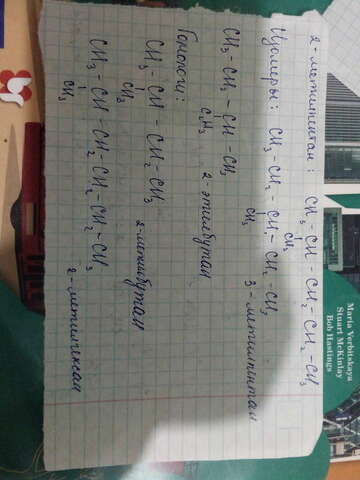 2-метилпентан: CH₃-CH-CH₂-CH₂-CH₃
CH₃
Изомеры: CH₃-CH₂-CH-CH₂-CH₃
CH₃
3-метилпентан
CH₃-CH₂-CH-CH₃
C₂H₅
2-этилбутан
Гомологи:
CH₃-CH-CH₂-CH₃
CH₃
2-метилбутан
CH₃-CH-CH₂-CH₂-CH₂-CH₃
CH₃
2-метилгексан
Maria Verbitskaya
Stuart McKinlay
Bob Hastings